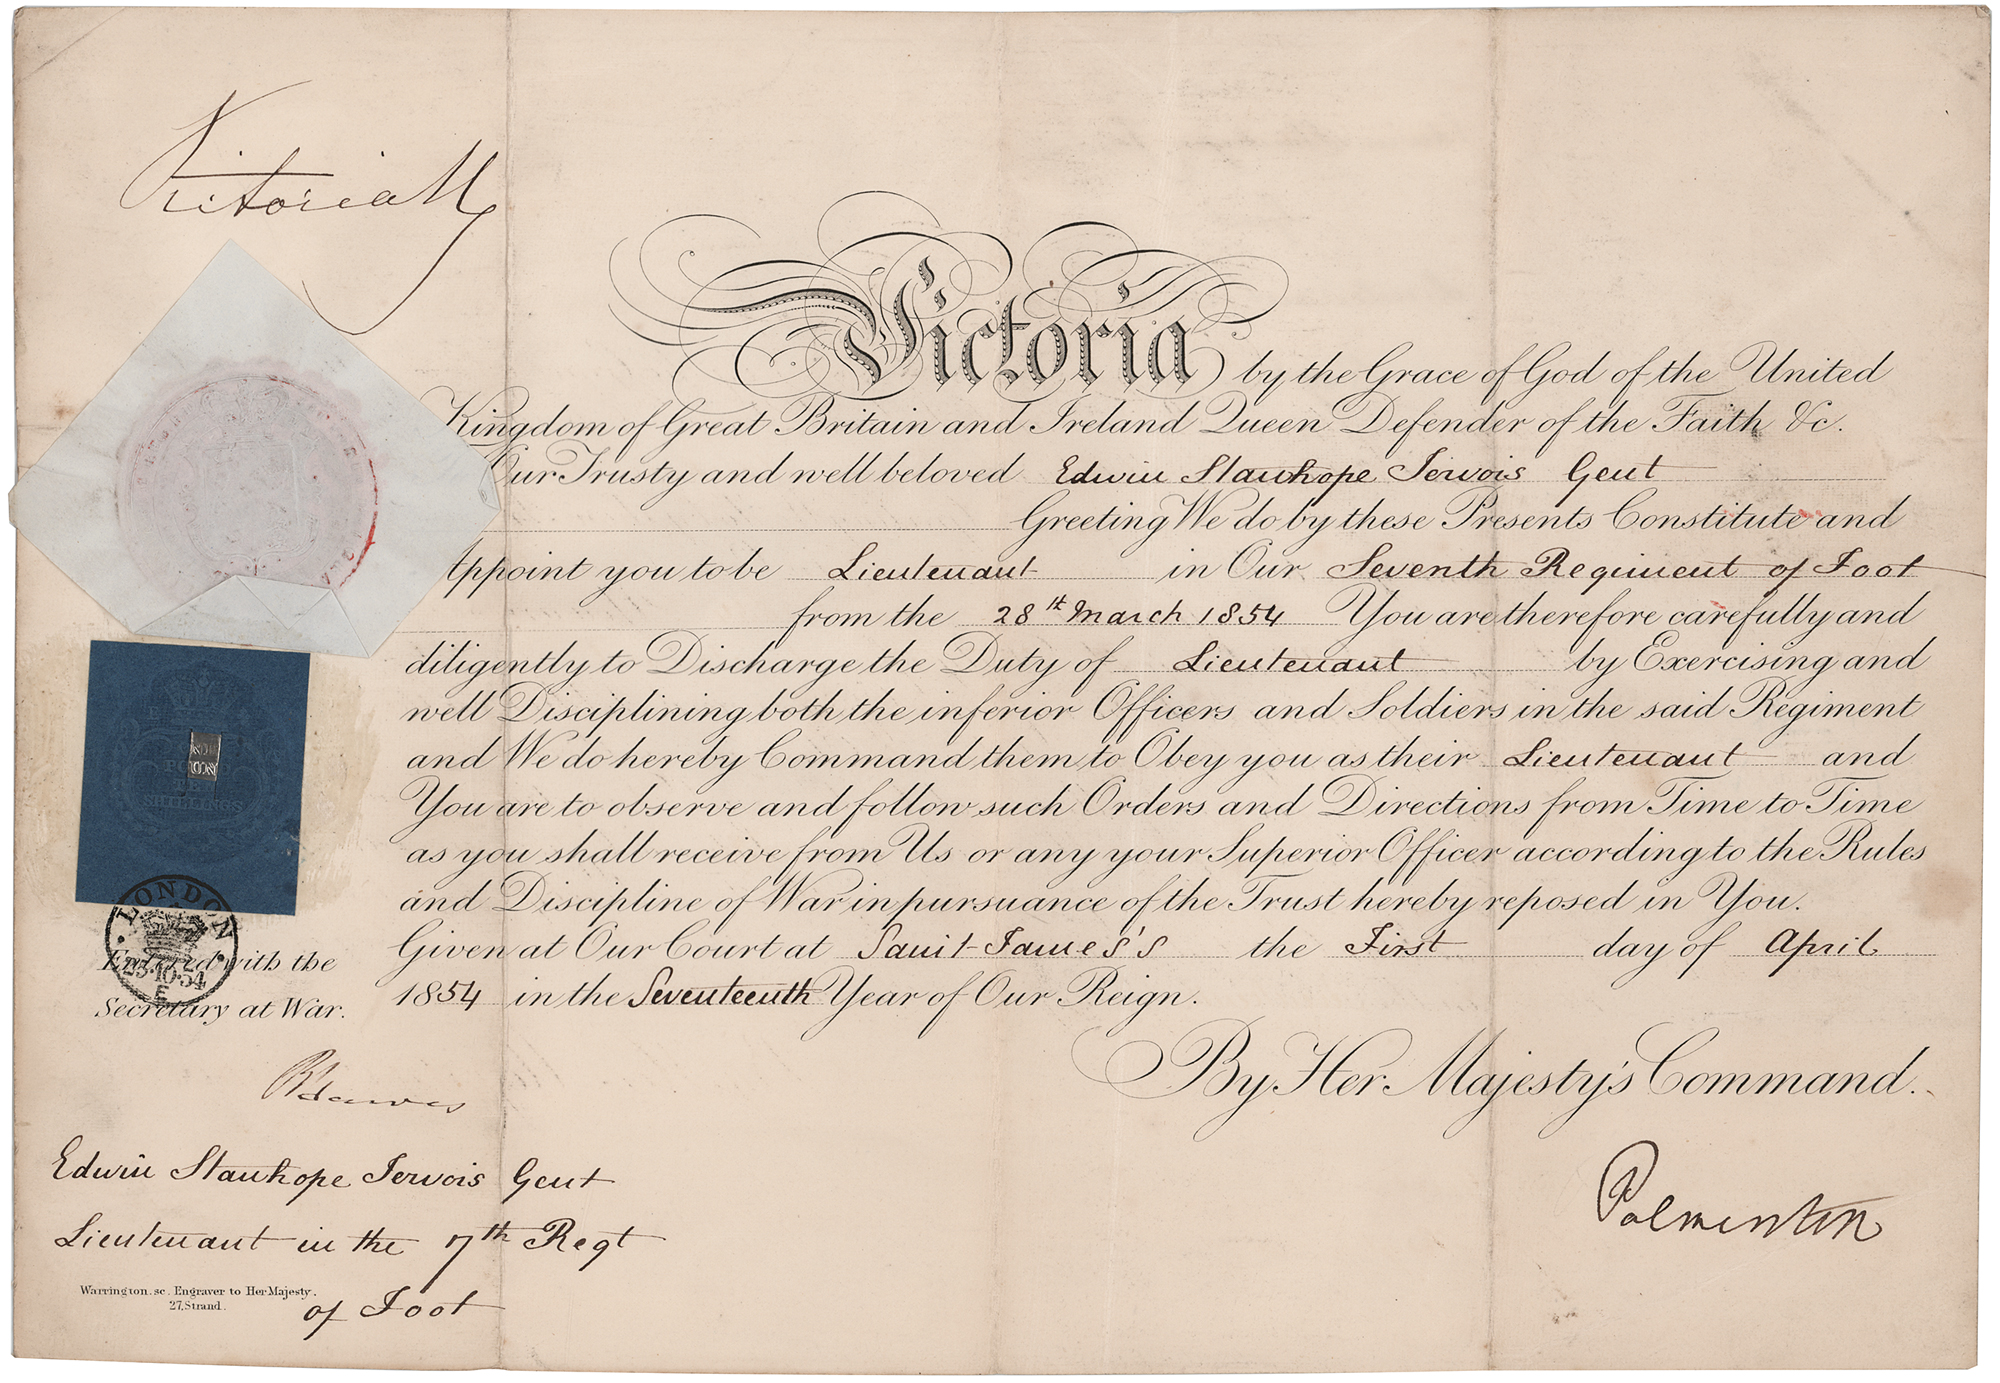 Victoria R
Victoria by the Grace of God of the United
Kingdom of Great Britain and Ireland Queen Defender of the Faith &c.
Our Trusty and well beloved Edwin Stanhope Jervois Gent
Greeting We do by these Presents Constitute and
Appoint you to be Lieutenant in Our Seventh Regiment of Foot
from the 28th March 1854 You are therefore carefully and
diligently to Discharge the Duty of Lieutenant by Exercising and
well Disciplining both the inferior Officers and Soldiers in the said Regiment
and We do hereby Command them to Obey you as their Lieutenant and
You are to observe and follow such Orders and Directions from Time to Time
as you shall receive from Us or any your Superior Officer according to the Rules
and Discipline of War in pursuance of the Trust hereby reposed in You.
Given at Our Court at Saint James's the First day of April
1854 in the Seventeenth Year of Our Reign.
By Her Majesty's Command.
Palmerston
TEN
SHILLINGS
LONDON
Entered with the
Secretary at War.
Edwin Stanhope Jervois Gent
Lieutenant in the 7th Regt
of Foot
Warrington. sc. Engraver to Her Majesty.
27, Strand.